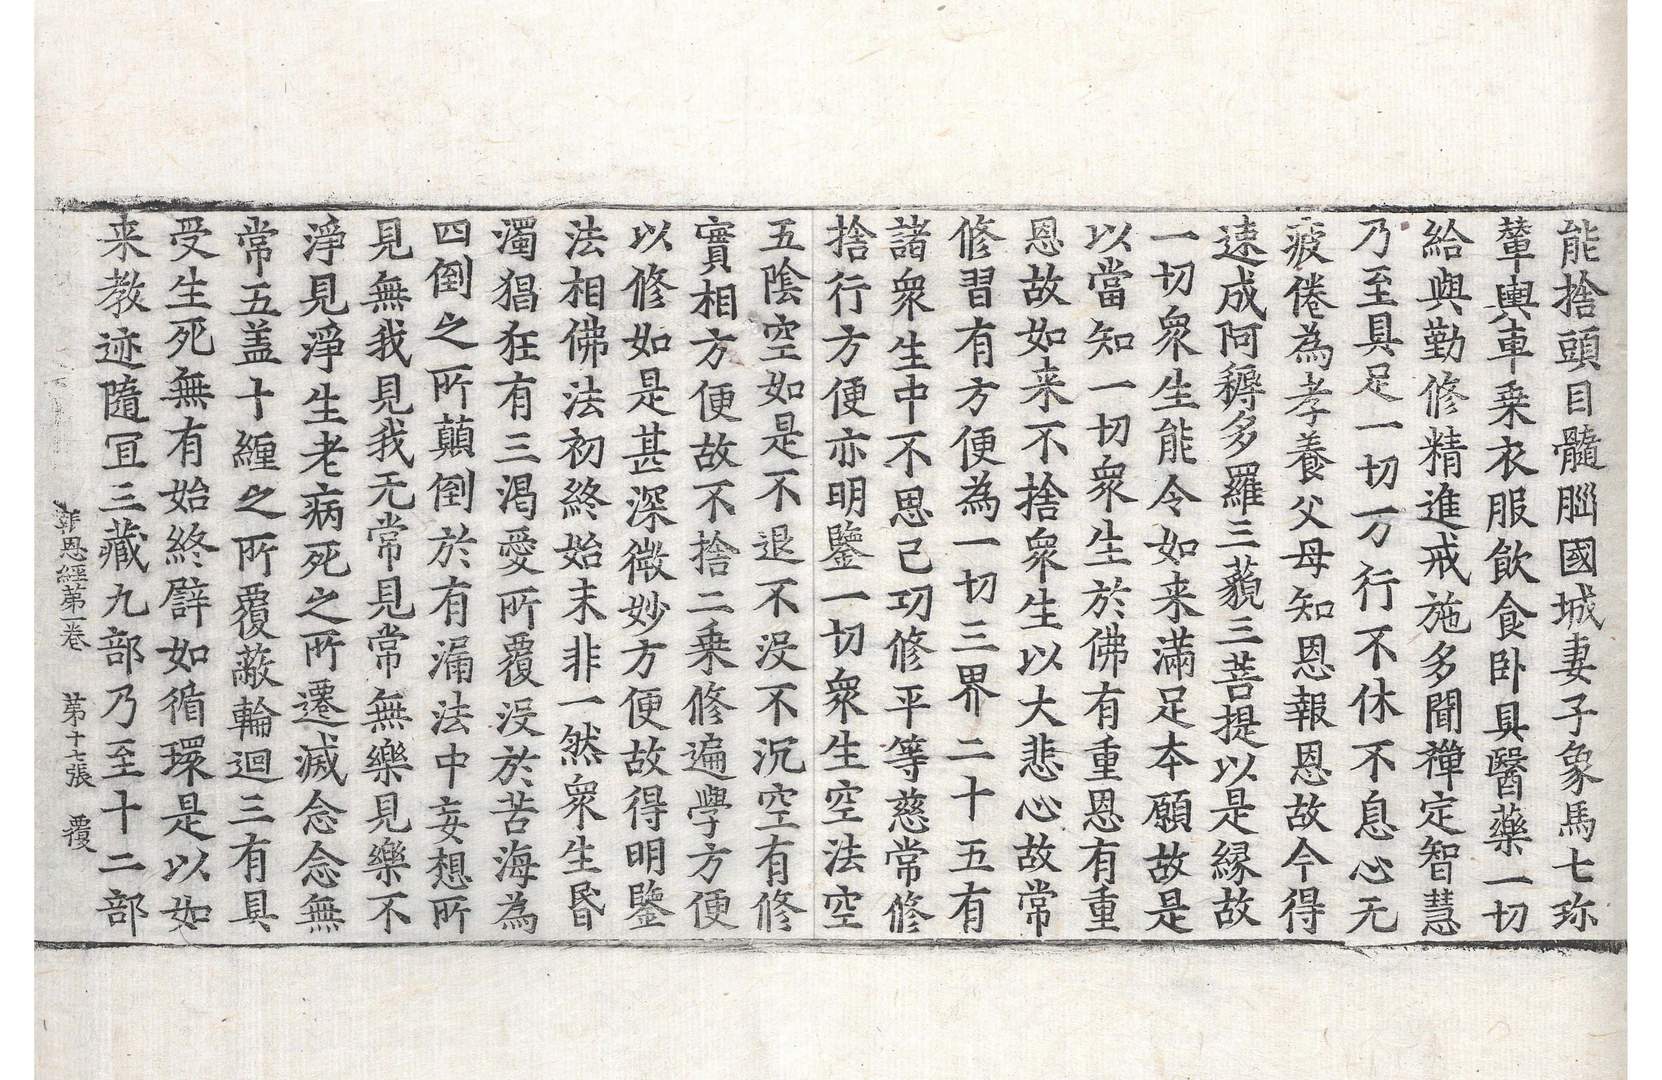 能捨頭目髓腦國城妻子象馬七珎
輦輿車乗衣服飲食卧具醫藥一切
給與勤修精進戒施多聞禪定智慧
乃至具足一切万行不休不息心无
疲倦為孝養父母知恩報恩故今得
速成阿耨多羅三藐三菩提以是縁故
一切衆生能令如来滿足本願故是
以當知一切衆生於佛有重恩有重
恩故如来不捨衆生以大悲心故常
修習有方便為一切三界二十五有
諸衆生中不思己功修平等慈常修
捨行方便亦明鑒一切衆生空法空
五陰空如是不退不没不沉空有修
實相方便故不捨二乗修遍學方便
以修如是甚深微妙方便故得明鑒
法相佛法初終始末非一然衆生昬
濁猖狂有三渴愛所覆没於苦海為
四倒之所顛倒於有漏法中妄想所
見無我見我无常見常無樂見樂不
淨見淨生老病死之所遷滅念念無
常五盖十纏之所覆蔽輪迴三有具
受生死無有始終譬如循環是以如
来教迹隨冝三藏九部乃至十二部
恩經第一卷　第十七張　覆